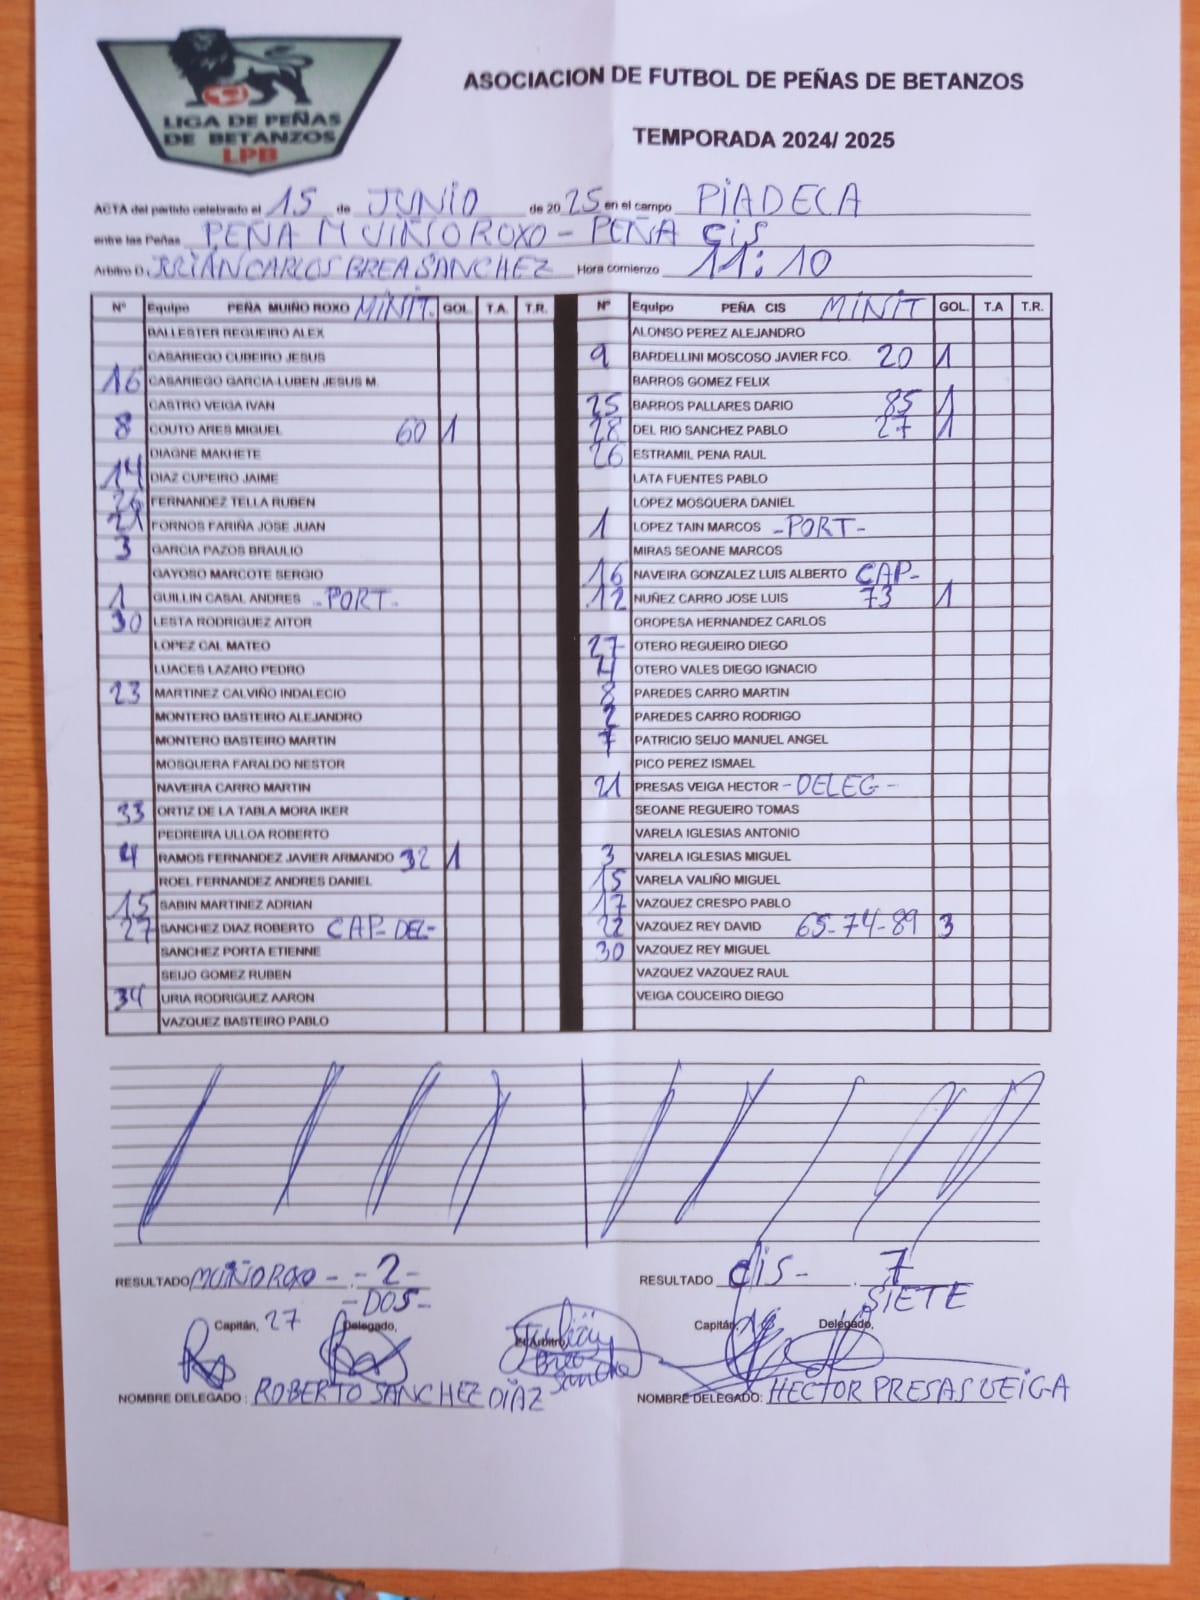 LIGA DE PEÑAS
DE BETANZOS
LPB
ASOCIACION DE FUTBOL DE PEÑAS DE BETANZOS
TEMPORADA 2024/ 2025
ACTA del partido celebrado el 15 de JUNIO de 2025 en el campo PIADECA
entre las Peñas PEÑA MUIÑOROXO - PEÑA CIS
Arbitro D. JULIAN CARLOS BREA SANCHEZ Hora comienzo 11:10
Nº Equipo PEÑA MUIÑO ROXO MINIT. GOL. T.A. T.R.
BALLESTER REGUEIRO ALEX
CASARIEGO CUBEIRO JESUS
16 CASARIEGO GARCIA-LUBEN JESUS M.
CASTRO VEIGA IVAN
8 COUTO ARES MIGUEL 60 1
DIAGNE MAKHETE
14 DIAZ CUPEIRO JAIME
26 FERNANDEZ TELLA RUBEN
21 FORNOS FARIÑA JOSE JUAN
3 GARCIA PAZOS BRAULIO
GAYOSO MARCOTE SERGIO
1 GUILLIN CASAL ANDRES -PORT-
30 LESTA RODRIGUEZ AITOR
LOPEZ CAL MATEO
LUACES LAZARO PEDRO
23 MARTINEZ CALVIÑO INDALECIO
MONTERO BASTEIRO ALEJANDRO
MONTERO BASTEIRO MARTIN
MOSQUERA FARALDO NESTOR
NAVEIRA CARRO MARTIN
33 ORTIZ DE LA TABLA MORA IKER
PEDREIRA ULLOA ROBERTO
4 RAMOS FERNANDEZ JAVIER ARMANDO 32 1
ROEL FERNANDEZ ANDRES DANIEL
15 SABIN MARTINEZ ADRIAN
27 SANCHEZ DIAZ ROBERTO CAP- DEL-
SANCHEZ PORTA ETIENNE
SEIJO GOMEZ RUBEN
34 URIA RODRIGUEZ AARON
VAZQUEZ BASTEIRO PABLO
Nº Equipo PEÑA CIS MINIT GOL. T.A T.R.
ALONSO PEREZ ALEJANDRO
9 BARDELLINI MOSCOSO JAVIER FCO. 20 1
BARROS GOMEZ FELIX
25 BARROS PALLARES DARIO 85 1
28 DEL RIO SANCHEZ PABLO 27 1
26 ESTRAMIL PENA RAUL
LATA FUENTES PABLO
LOPEZ MOSQUERA DANIEL
1 LOPEZ TAIN MARCOS -PORT-
MIRAS SEOANE MARCOS
16 NAVEIRA GONZALEZ LUIS ALBERTO CAP-
12 NUÑEZ CARRO JOSE LUIS 73 1
OROPESA HERNANDEZ CARLOS
27 OTERO REGUEIRO DIEGO
4 OTERO VALES DIEGO IGNACIO
8 PAREDES CARRO MARTIN
2 PAREDES CARRO RODRIGO
7 PATRICIO SEIJO MANUEL ANGEL
PICO PEREZ ISMAEL
21 PRESAS VEIGA HECTOR - DELEG -
SEOANE REGUEIRO TOMAS
VARELA IGLESIAS ANTONIO
3 VARELA IGLESIAS MIGUEL
15 VARELA VALIÑO MIGUEL
17 VAZQUEZ CRESPO PABLO
22 VAZQUEZ REY DAVID 65-74-89 3
30 VAZQUEZ REY MIGUEL
VAZQUEZ VAZQUEZ RAUL
VEIGA COUCEIRO DIEGO
RESULTADO MUIÑOROXO - -2-
-DOS-
RESULTADO CIS- 7
SIETE
Capitán, 27 Delegado,
Julián
Brea
Sanchez
Capitán, Delegado,
NOMBRE DELEGADO : ROBERTO SANCHEZ DIAZ
NOMBRE DELEGADO: HECTOR PRESAS VEIGA